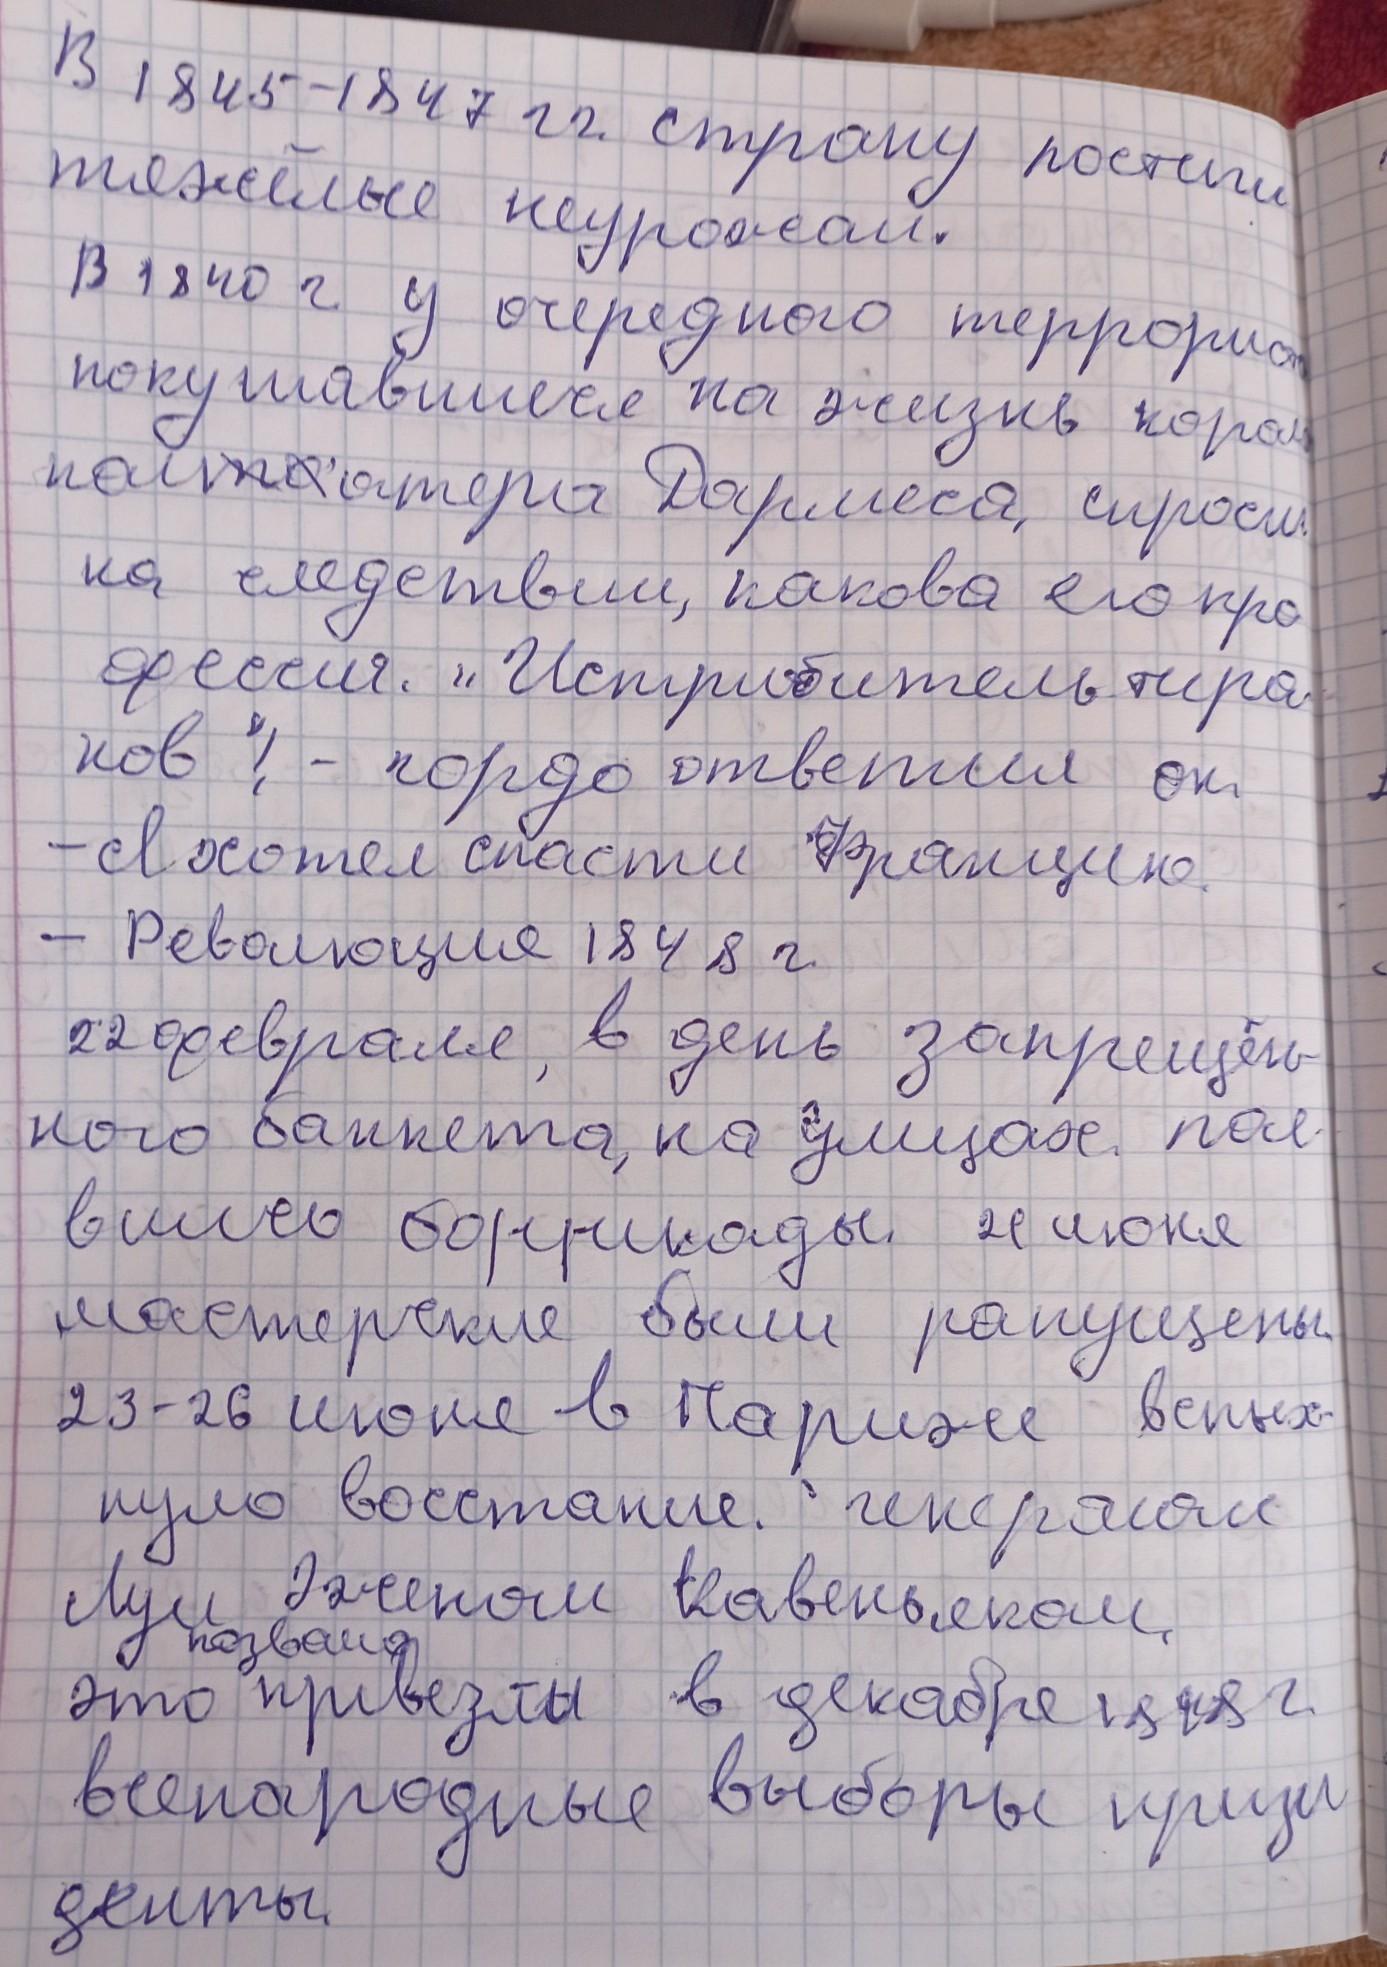 В 1845-1847 гг. страну постигли
тяжёлые неурожаи.
В 1840 г. у очередного террорист
покушавшиеся на жизнь корол
Дармеса, спросил
на следствии, какова его про
фессия. „Истребитель тира-
нов"! - гордо ответил он.
- Я хотел спасти Францию.
- Революция 1848 г.
22 февраля, в день запрещён-
ного банкета, на улицах. поя-
вились баррикады. 21 июня
мастерские были рапущены.
23-26 июня в Париже вспых-
нуло восстание. генералом
Луи Эженом Кавеньяком,
назвало
это в декабре 1848 г.
всенародные выборы призи
денты.